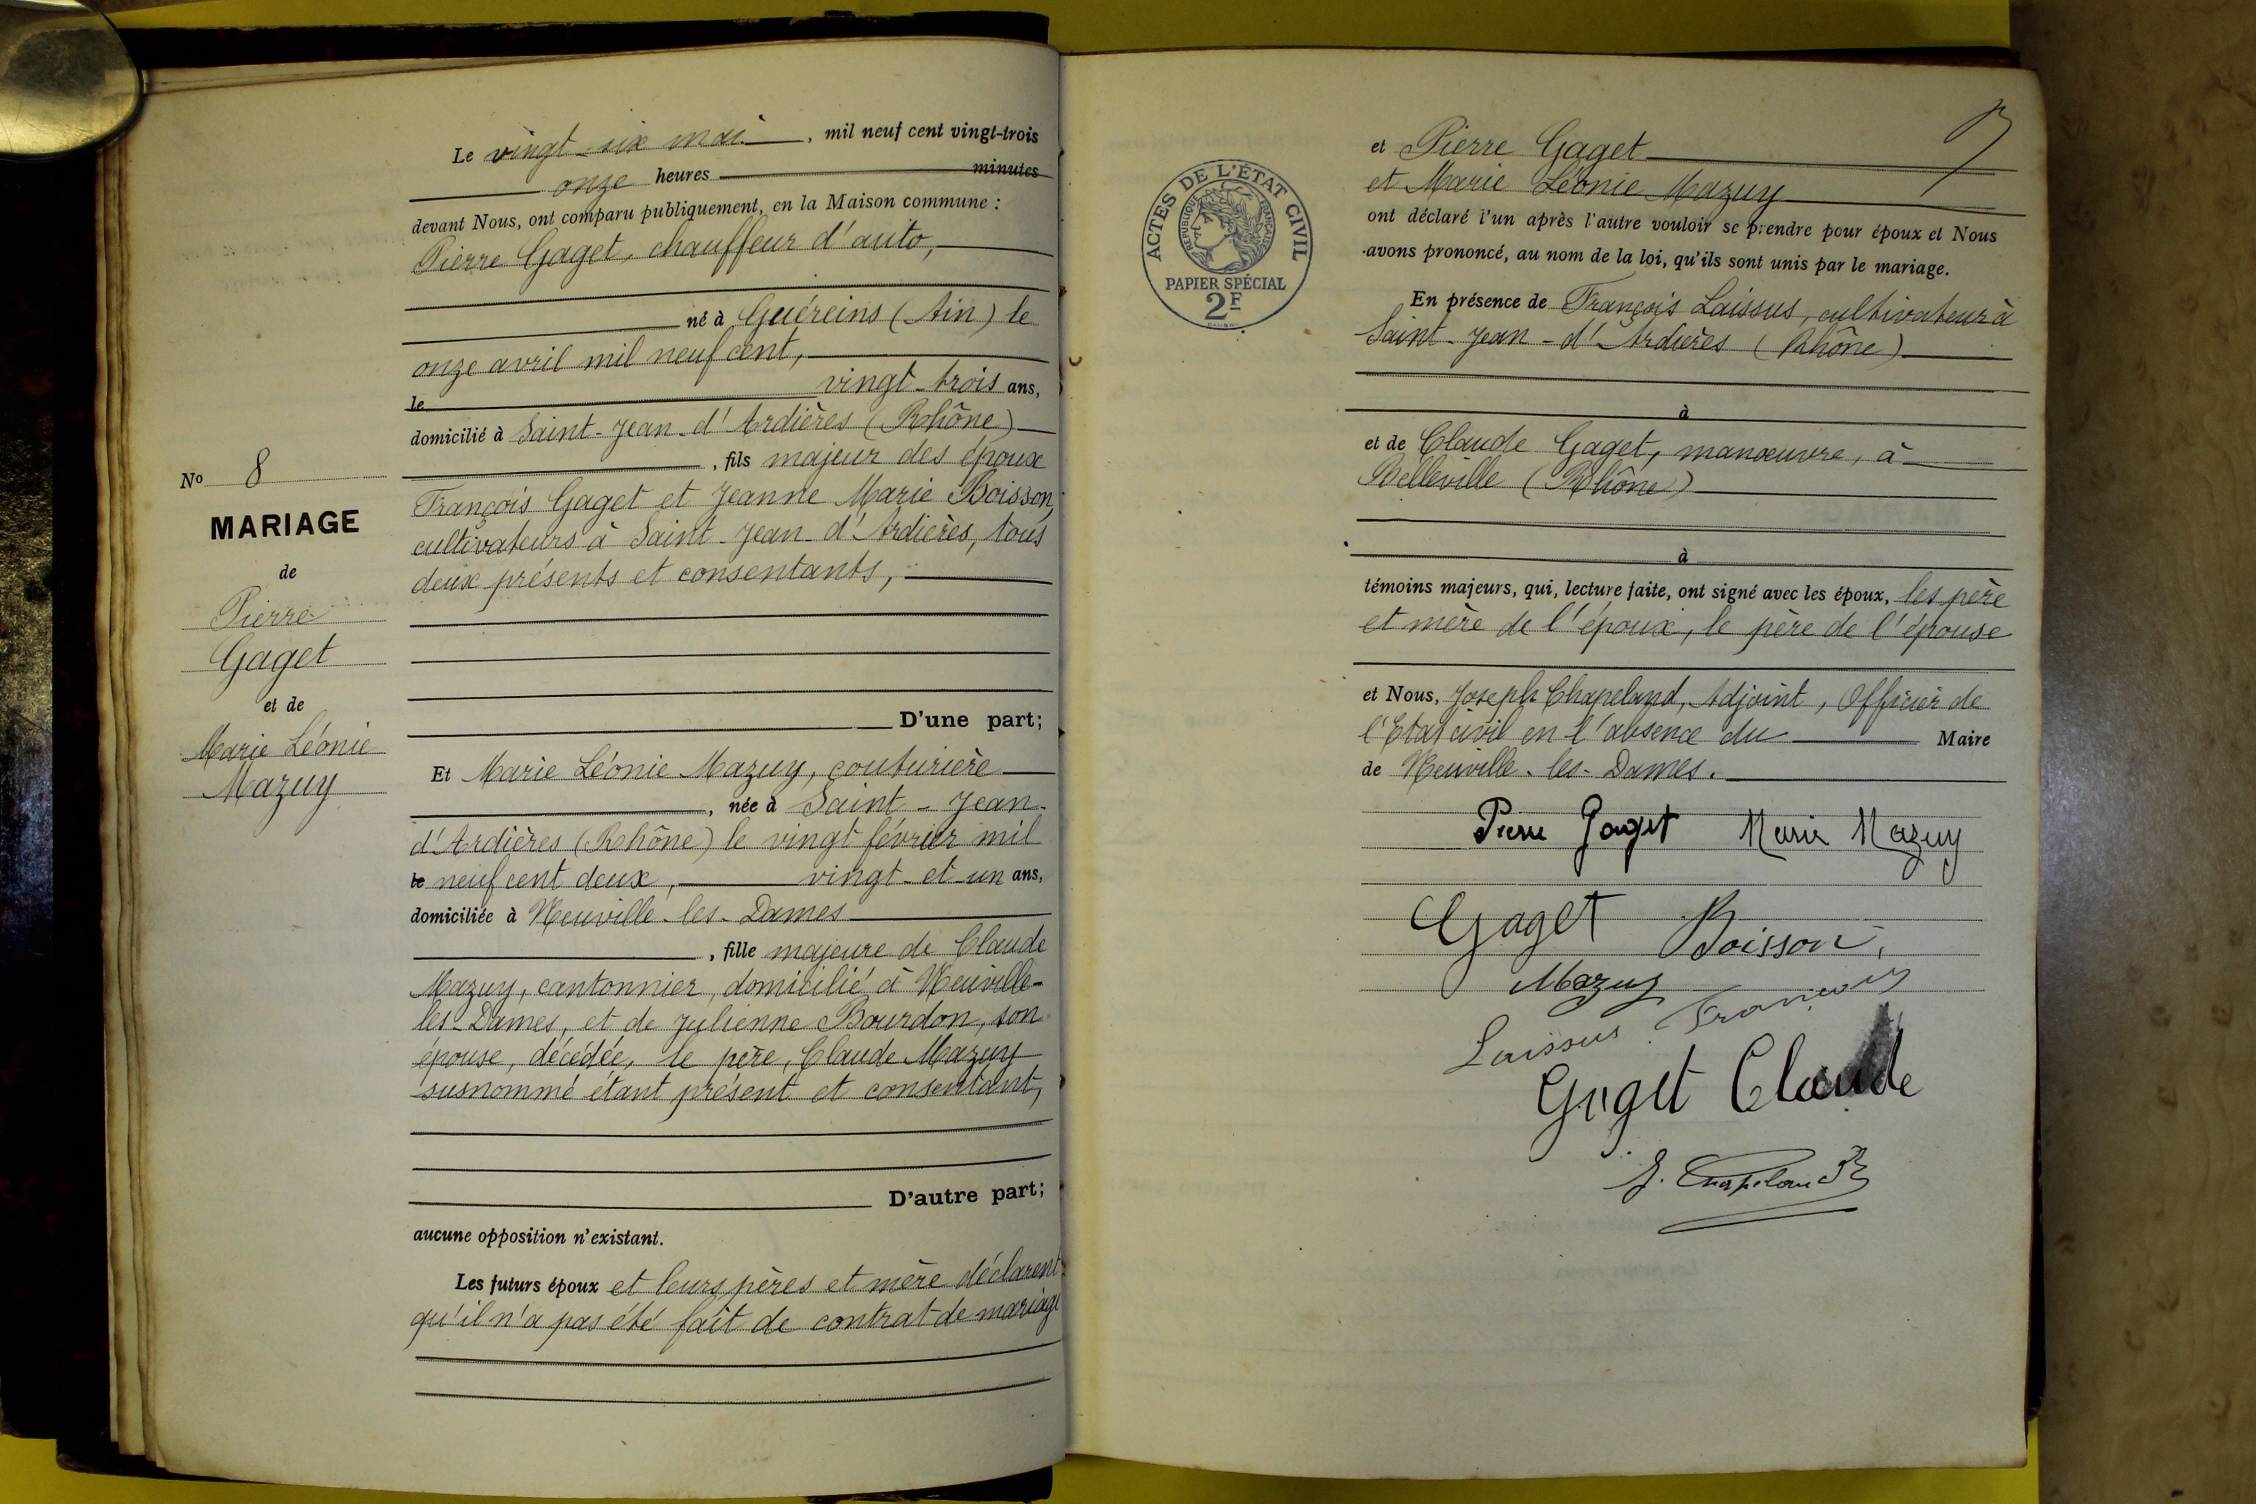 Le vingt-six mai, mil neuf cent vingt-trois
onze heures minutes
devant Nous, ont comparu publiquement, en la Maison commune :
Pierre Gaget, chauffeur d'auto,
né à Guéreins (Ain) le
onze avril mil neuf cent,
le vingt-trois ans,
domicilié à Saint-Jean-d'Ardières (Rhône)
, fils majeur des époux
François Gaget et Jeanne Marie Boisson,
cultivateurs à Saint-Jean-d'Ardières, tous
deux présents et consentants,
D'une part;
Et Marie Léonie Mazuy, couturière
, née à Saint-Jean-
d'Ardières (Rhône) le vingt février mil
le neuf cent deux, vingt-et-un ans,
domiciliée à Neuville-les-Dames
, fille majeure de Claude
Mazuy, cantonnier, domicilié à Neuville-
les-Dames, et de Julienne Bourdon, son
épouse, décédée, le père, Claude Mazuy
susnommé étant présent et consentant,
D'autre part;
aucune opposition n'existant.
Les futurs époux et leurs pères et mère déclarent
qu'il n'a pas été fait de contrat de mariage
No 8
MARIAGE
de
Pierre
Gaget
et de
Marie Léonie
Mazuy
ACTES DE L'ÉTAT CIVIL
RÉPUBLIQUE FRANÇAISE
PAPIER SPÉCIAL
2F
et Pierre Gaget
et Marie Léonie Mazuy
ont déclaré l'un après l'autre vouloir se prendre pour époux et Nous
avons prononcé, au nom de la loi, qu'ils sont unis par le mariage.
En présence de François Laissus, cultivateur à
Saint-Jean-d'Ardières (Rhône)
à
et de Claude Gaget, manœuvre, à
Belleville (Rhône)
à
témoins majeurs, qui, lecture faite, ont signé avec les époux, les père
et mère de l'époux, le père de l'épouse
et Nous, Joseph Chapeland, Adjoint, Officier de
l'Etat civil en l'absence du Maire
de Neuville-les-Dames.
Pierre Gaget Marie Mazuy
Gaget Boisson
Mazuy
Laissus François
Gaget Claude
J. Chapeland